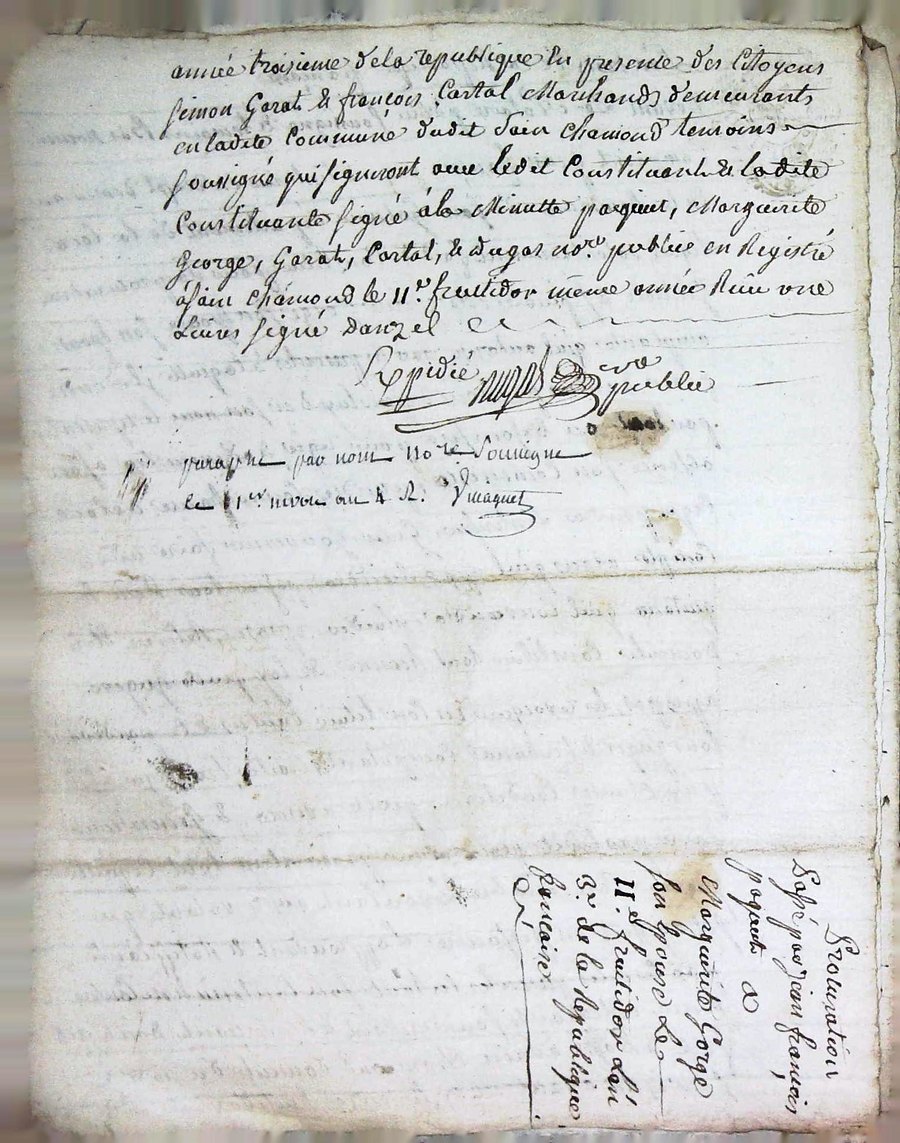 année troisieme de la republique En presence des Citoyens
Simon Garat & françois Cartal Marchands demeurants
en ladite Commune dudit Sain Chamond temoins
Soussigné qui signeront avec ledit Constituant & la dite
Constituante signé à la Minutte paquet, Marguerite
George, Garat, Cartal, & dugas nore. public en Registré
à Sain Chamond le 11e. fructidor même année Reçu une
Livres signé danzel
Expidié dugas nre
public
paraphé par nous no re Soussigné
le 1er nivose an 4 R.
Procuration
Passé par jean françois
paquet a
Marguerite Gorge
son Epouse Le
11e. fructidor L'an
3e. de la Republique
francoise